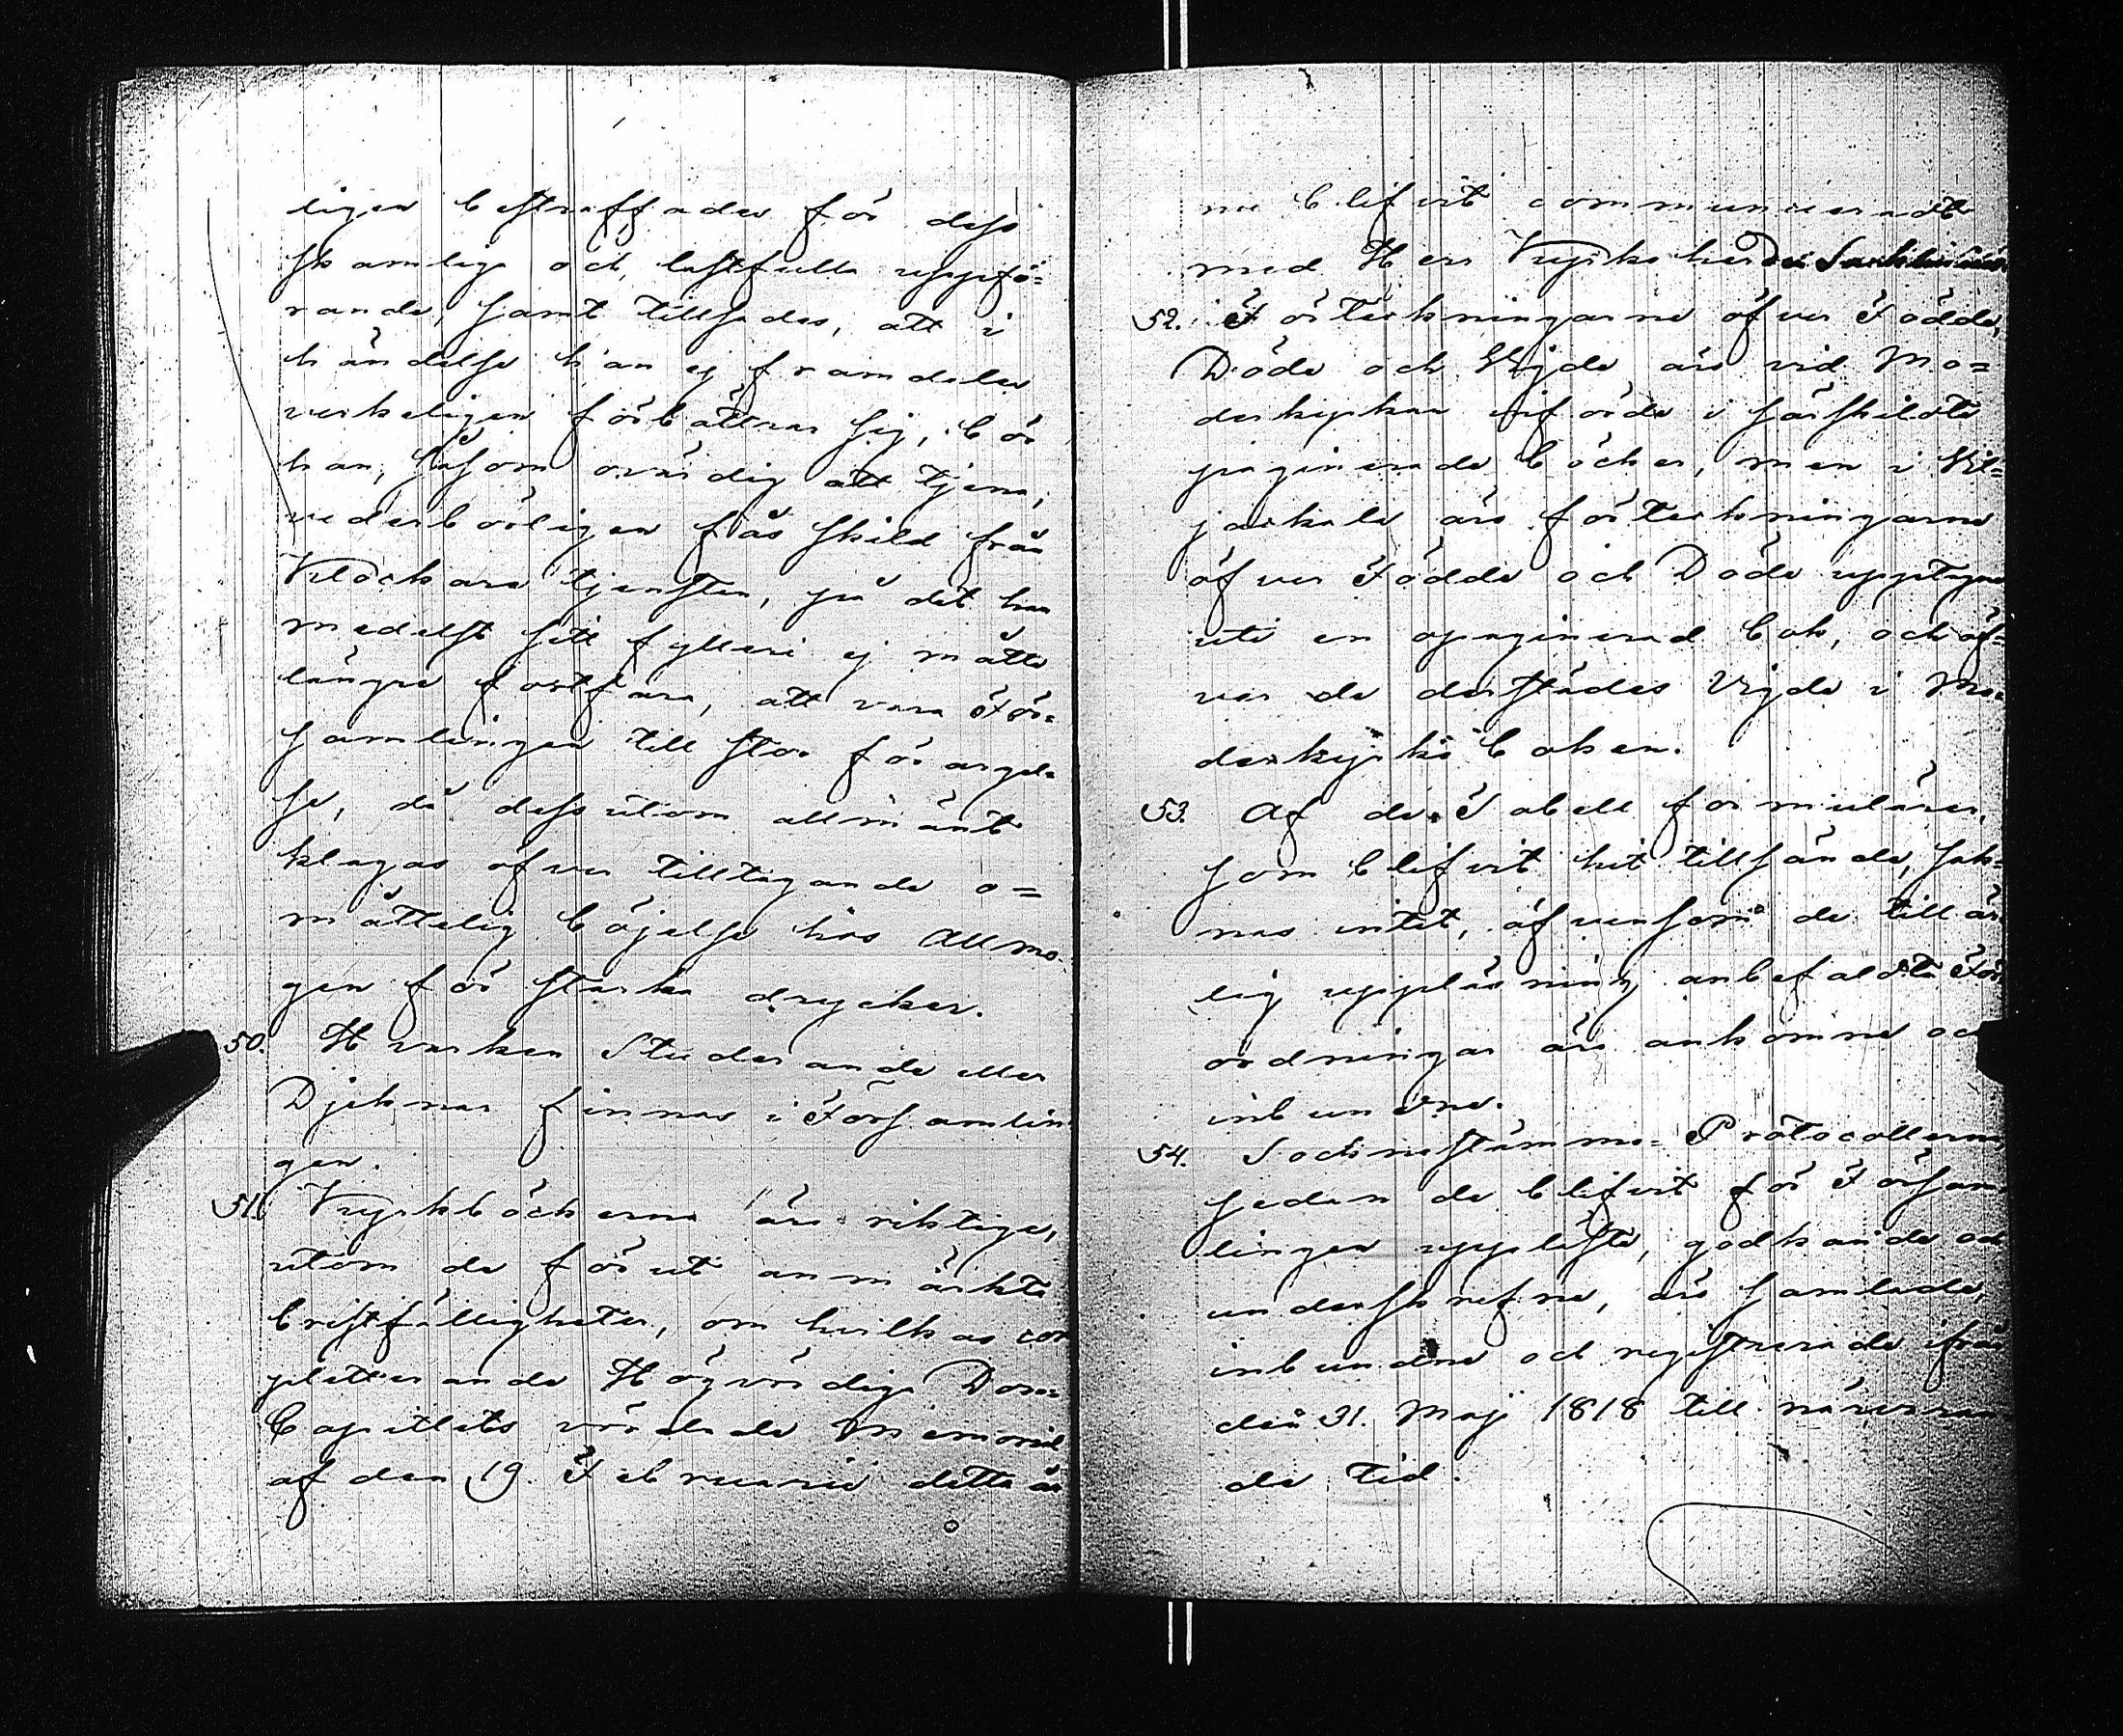 ligen bestraffades för dess
skamliga och lastfulla uppfö=
rande, samt tillsades, att i
händelse han ej framdeles
verkeligen förbättrar sig, bör
han, såsom ovärdig att tjena,
vederbörligen fås skild från
Klockare tjensten, på det han
medelst sitt fylleri ej måtte
längre fortfara, att vara För=
samlingen till stor förargel=
se, då dessutom allmänt
klagas öfver tilltagande o=
måttelig böjelse hos Allmo=
gen för starka drycker.
50. Hvarken Studerande eller
Djeknar finnas i Församlin
gen.
51. Kyrkböckerna äro riktige,
utom de förut anmärkta
bristfälligheter, om hvilkas com
pletterande Högvördige Dom=
Capitlets vördade Memorial
af den 19. Februarii detta år
nu blifvit communiceradt
med Herr Kyrkoherden
52. Förteckningarne öfver Födde,
Döde och Vigde äro vid Mo=
derkyrkan införde i särskildte
paginerade böcker, men i Kil=
jackala äro förteckningarne
öfver Födde och Döde upptagne
uti en opaginerad bok, och öf=
ver de derstädes Vigde i Mo=
derkyrko boken.
53. Af de Tabell formulärer,
som blifvit hit tillsände, sak=
nas intet, äfvensom de till år
lig uppläsning anbefaldte För
ordningar äro ankomne och
inbundne.
54. Socknestämmo=Protocollerne
sedan de blifvit för Försam
lingen uppläste, godkände och
underskrefne, äro samlade,
inbundne och registrerade ifrån
den 31. Maji 1818 till närvaran
de tid.